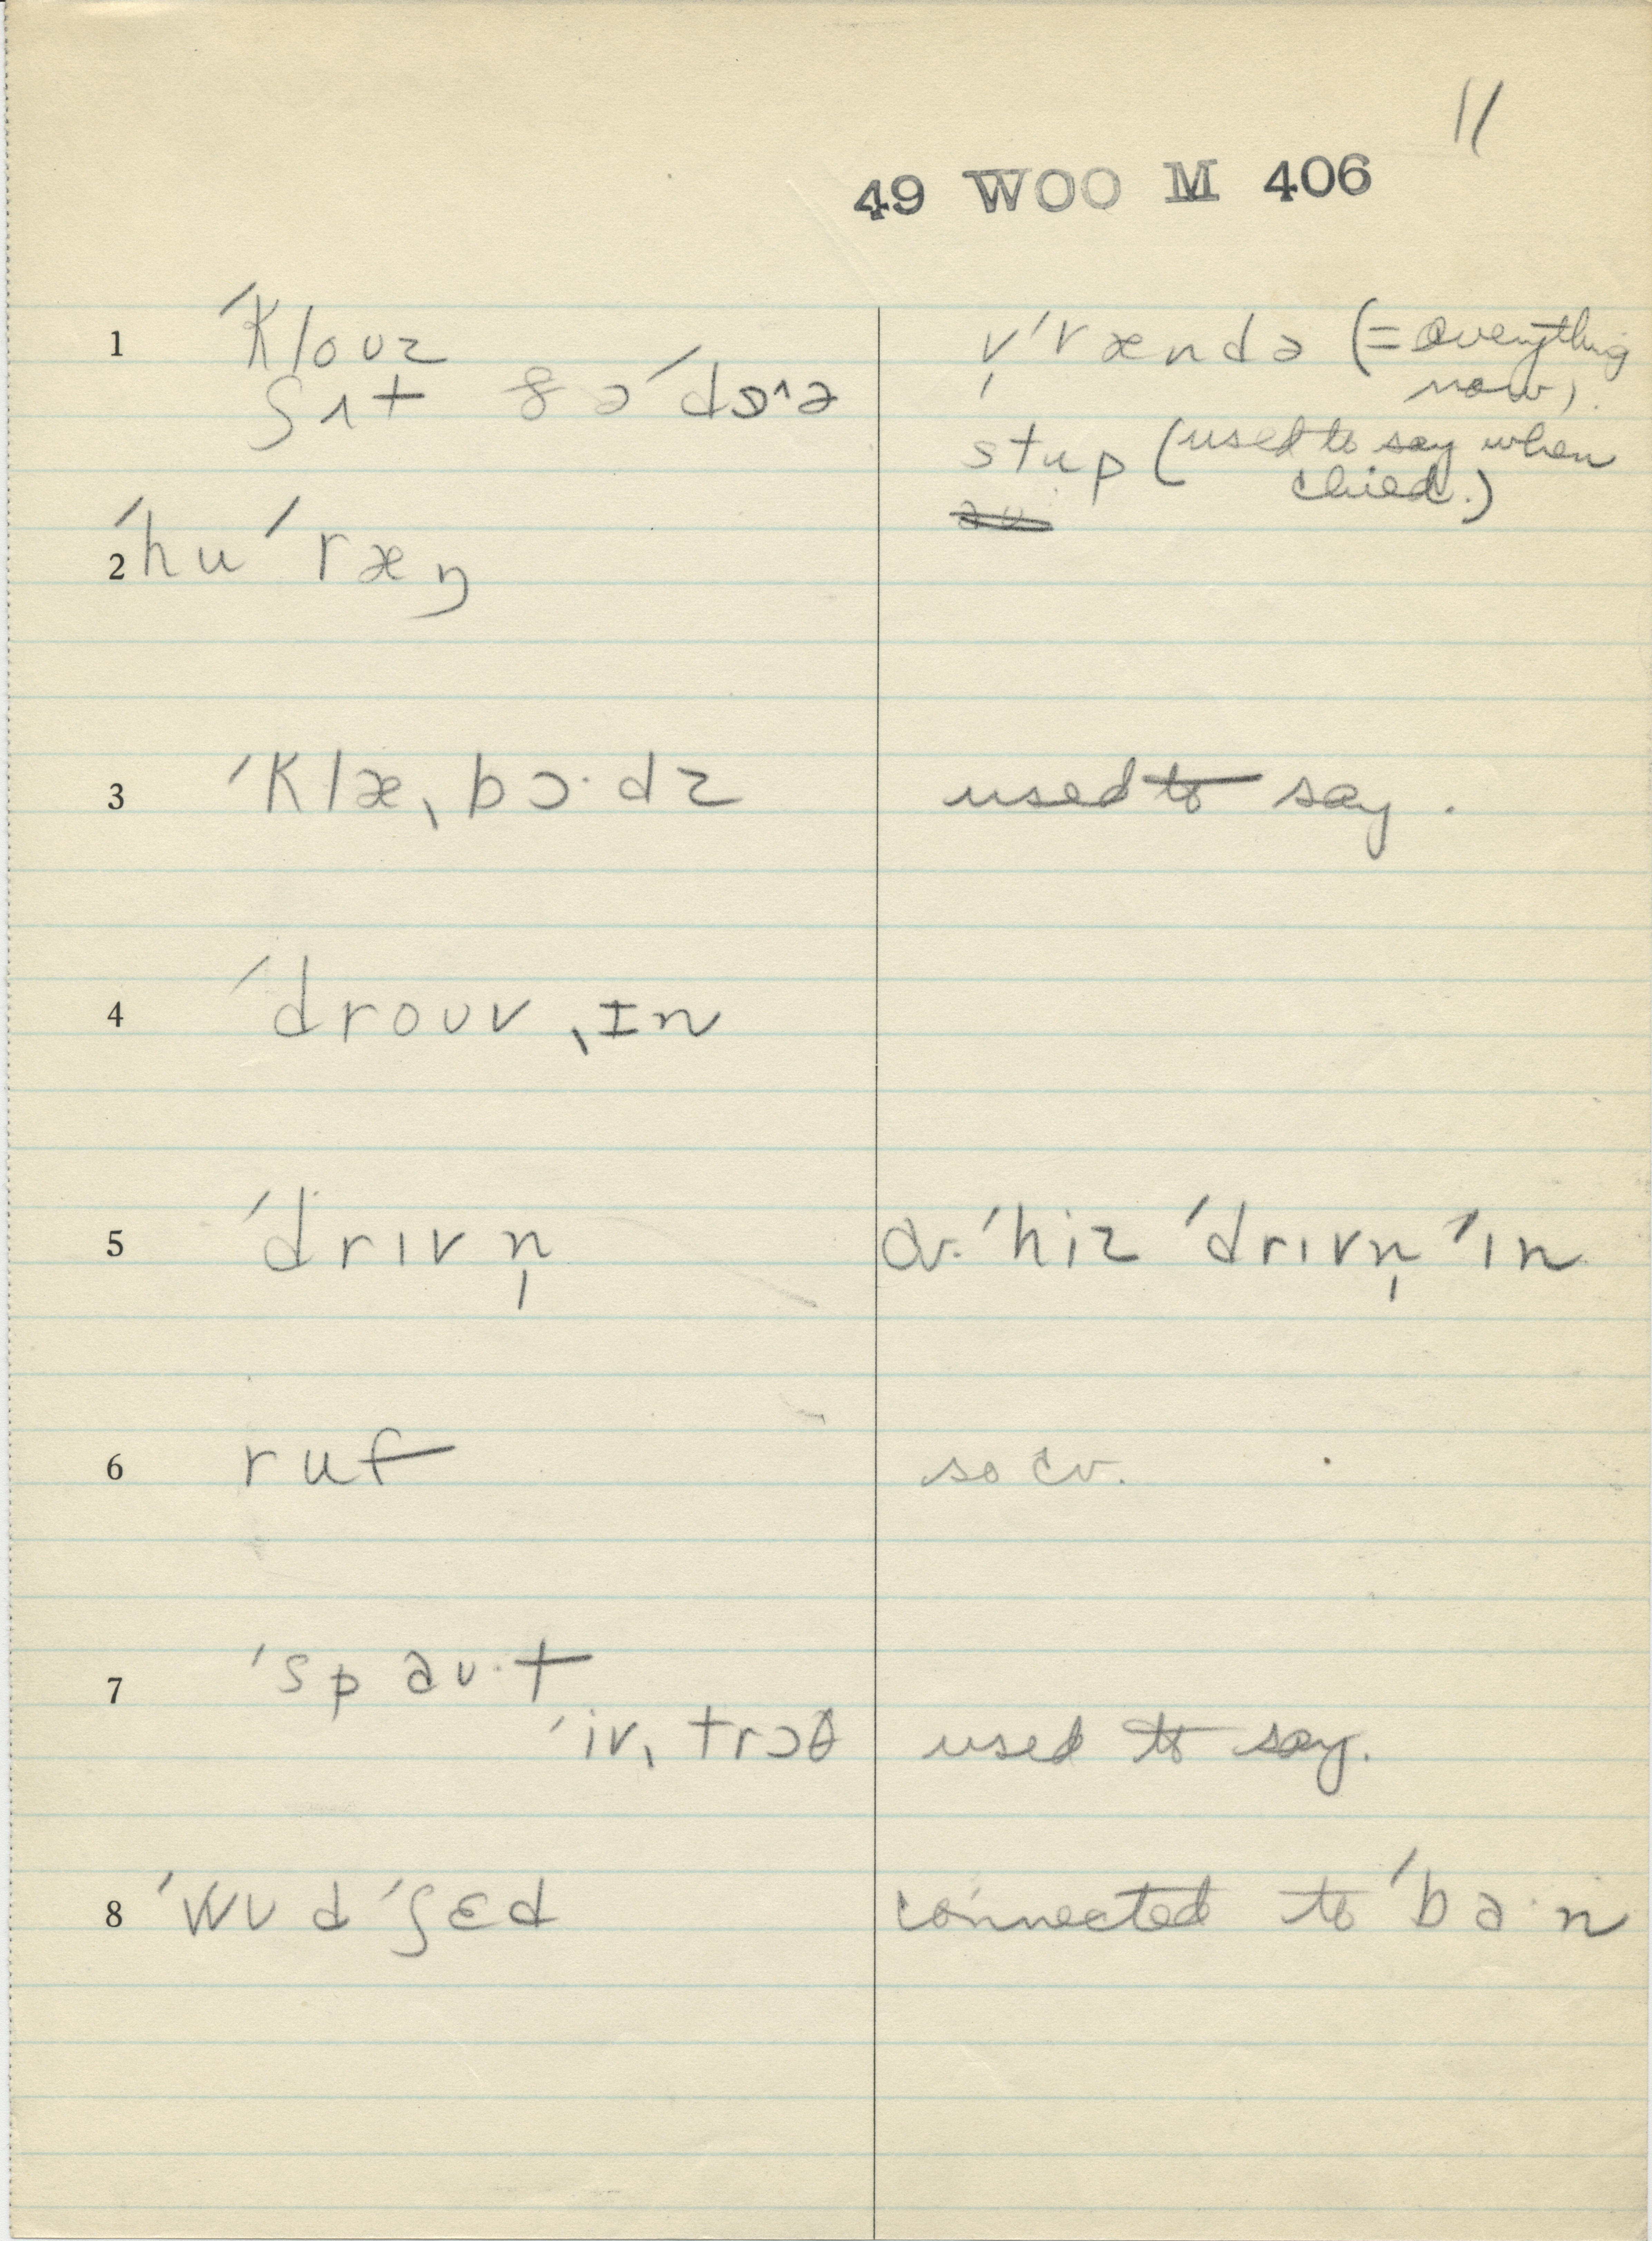 11
49 WOO M 406
1 ˈklouz
ʃʌt ðəˈdɔ^ə
v̩ˈrændə (= everything
now).
stup (used to say when
child.)
2 ˈhuˈræŋ
3 ˈklæˌbɔ·dz used to say.
4 ˈdrouvˌɪn
5 ˈdrɪvn̩ cv. ˈhiz ˈdrɪvn̩ ˈɪn
6 ruf so cv.
7 ˈspaʊ·t
ˈivˌtrɔθ used to say.
8 ˈwʊdˈʃɛd connected to ˈba·n